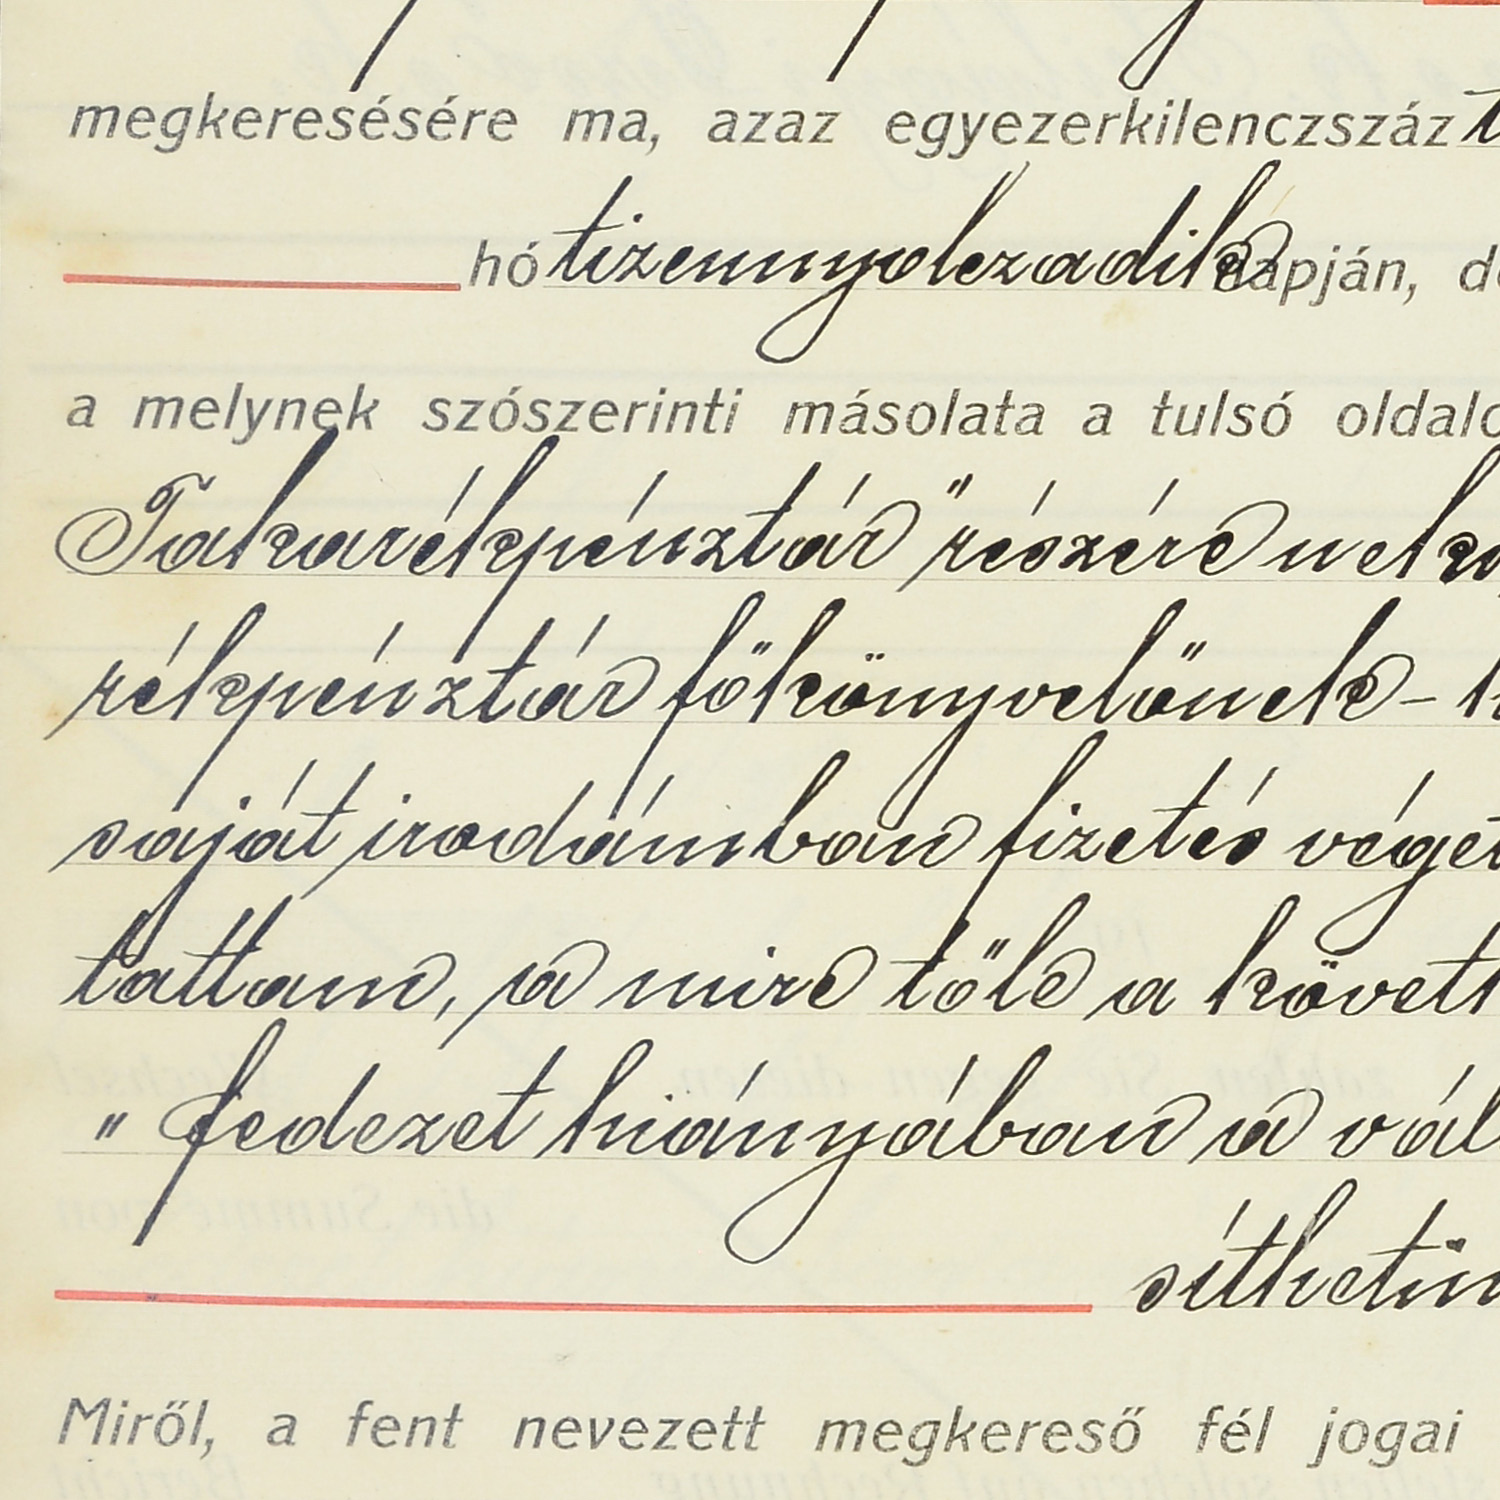 megkeresésére ma, azaz egyezerkilenczszáz
hó tizennyolczadik napján,
a melynek szószerinti másolata a tulsó
Takarékpénztár" részére
rékpénztár főkönyvelőnek -
saját irodámban fizetés véget
tattam, a mire tőle a követk
" fedezet hiányában a vál
síthetin
Miről, a fent nevezett megkereső fél jogai